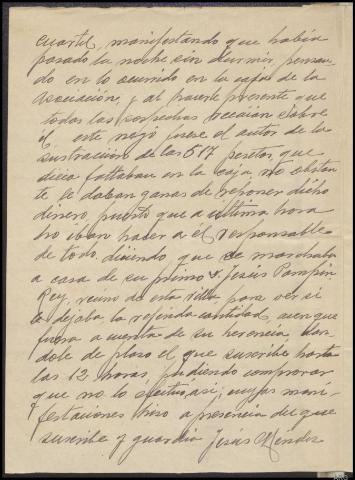 cuartel, manifestando que habia
pasado la noche sin dormir, pensan
do en lo ocurrido en la caja de la
asociación, y al hacerle presente que
todas las sospechas recaian sobre
él, este negó fuese el autor de la
sustracción de las 517 pesetas, que
dicia faltaban en la caja, no obstan
te, le daban ganas de reponer dicho
dinero, puesto que a última hora
lo iban hacer a el responsable
de todo, diciendo, que se marchaba
a casa de su primo D. Jesús Pampin
Rey, vecino de esta villa, para ver si
le dejaba la referida cantidad, aunque
fuera a cuenta de su herencia dan
dole de plazo el que suscribe hasta
las 12 horas, pudiendo comprovar
que no lo efectuó asi; cuyas mani-
festaciones hizo a presencia del que
suscribe y guardia Jesús Méndez